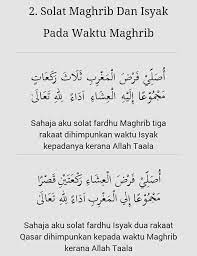 2. Solat Maghrib Dan Isyak
Pada Waktu Maghrib
أُصَلِّيْ فَرْضَ الْمَغْرِبِ ثَلَاثَ رَكَعَاتٍ
مَجْمُوْعًا إِلَيْهِ الْعِشَاءِ أَدَاءً لِلّٰهِ تَعَالَى
Sahaja aku solat fardhu Maghrib tiga
rakaat dihimpunkan waktu Isyak
kepadanya kerana Allah Taala
أُصَلِّيْ فَرْضَ الْعِشَاءِ رَكْعَتَيْنِ قَصْرًا
مَجْمُوْعًا إِلَى الْمَغْرِبِ أَدَاءً لِلّٰهِ تَعَالَى
Sahaja aku solat fardhu Isyak dua rakaat
Qasar dihimpunkan kepada waktu Maghrib
kerana Allah Taala